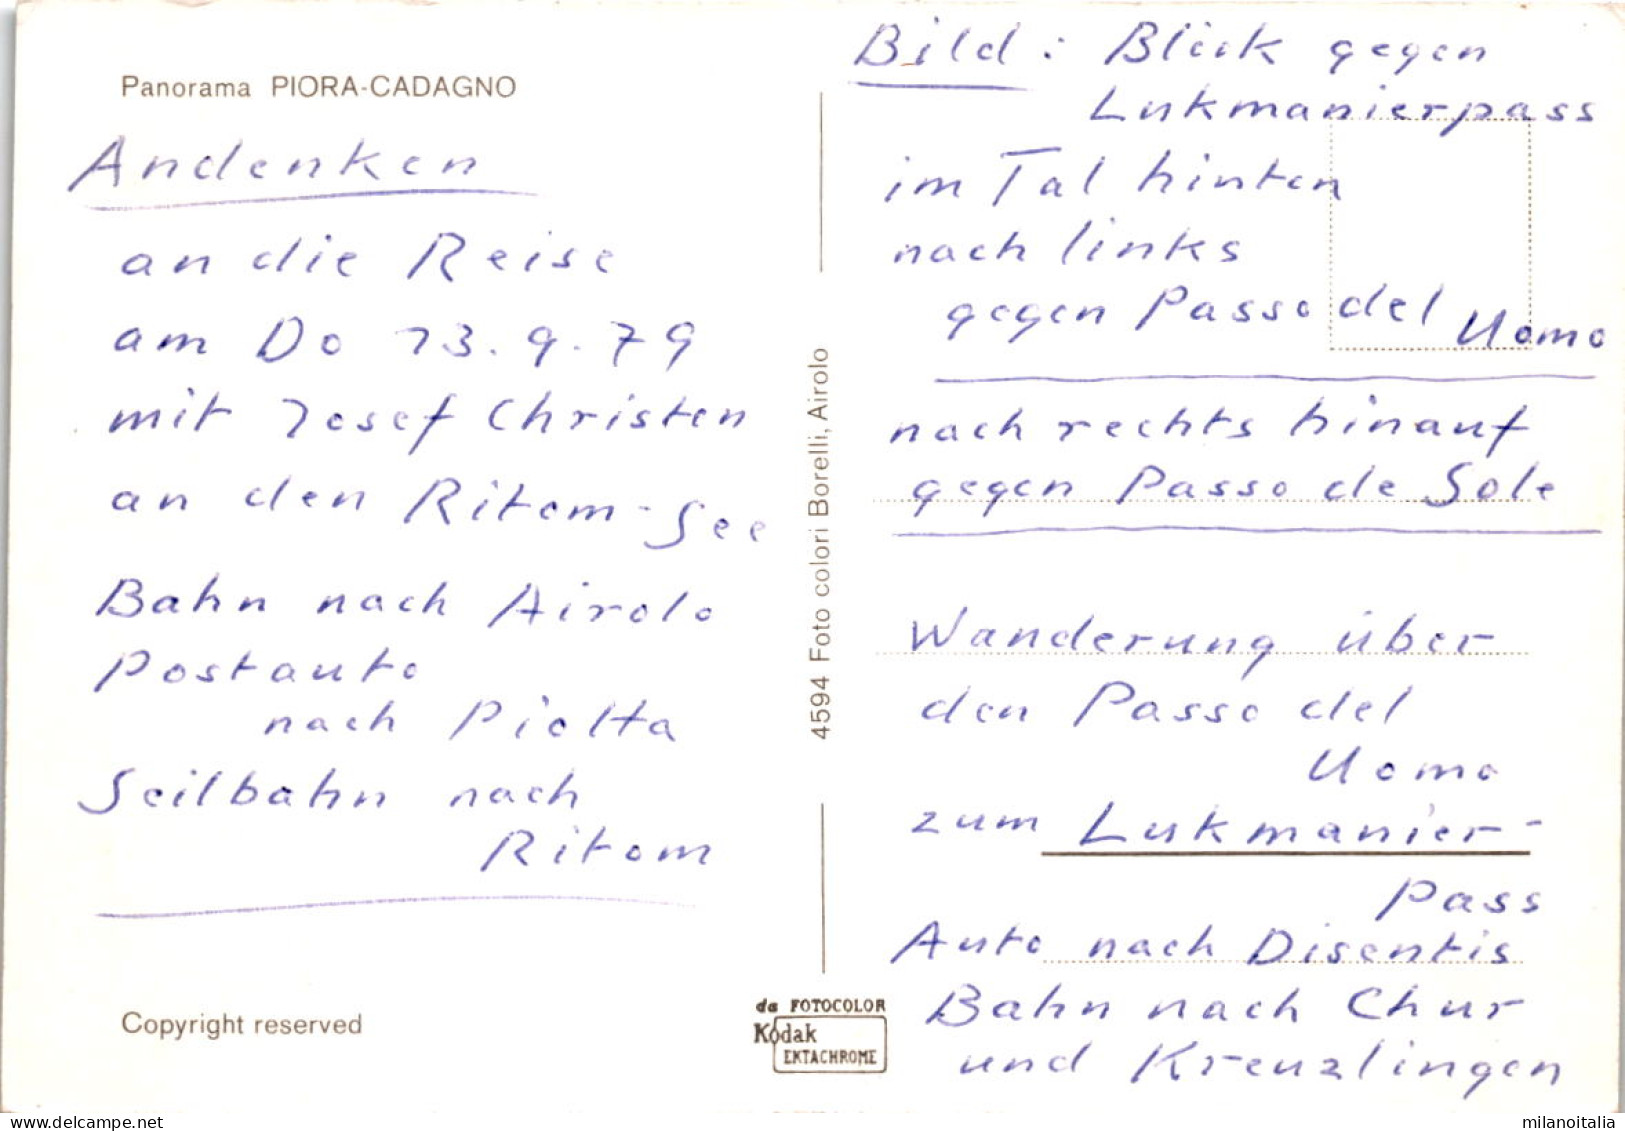 Panorama PIORA-CADAGNO
Andenken
an die Reise
am Do 13.9.79
mit Josef Christen
an den Ritom-See
Bahn nach Airolo
Postauto
nach Piotta
Seilbahn nach
Ritom
Copyright reserved
4594 Foto colori Borelli, Airolo
da FOTOCOLOR
Kodak
EKTACHROME
Bild: Blick gegen
Lukmanierpass
im Tal hinten
nach links
gegen Passo del Uomo
nach rechts hinauf
gegen Passo de Sole
Wanderung über
den Passo del
Uomo
zum Lukmanier-
pass
Auto nach Disentis
Bahn nach Chur
und Kreuzlingen
milanoitalia